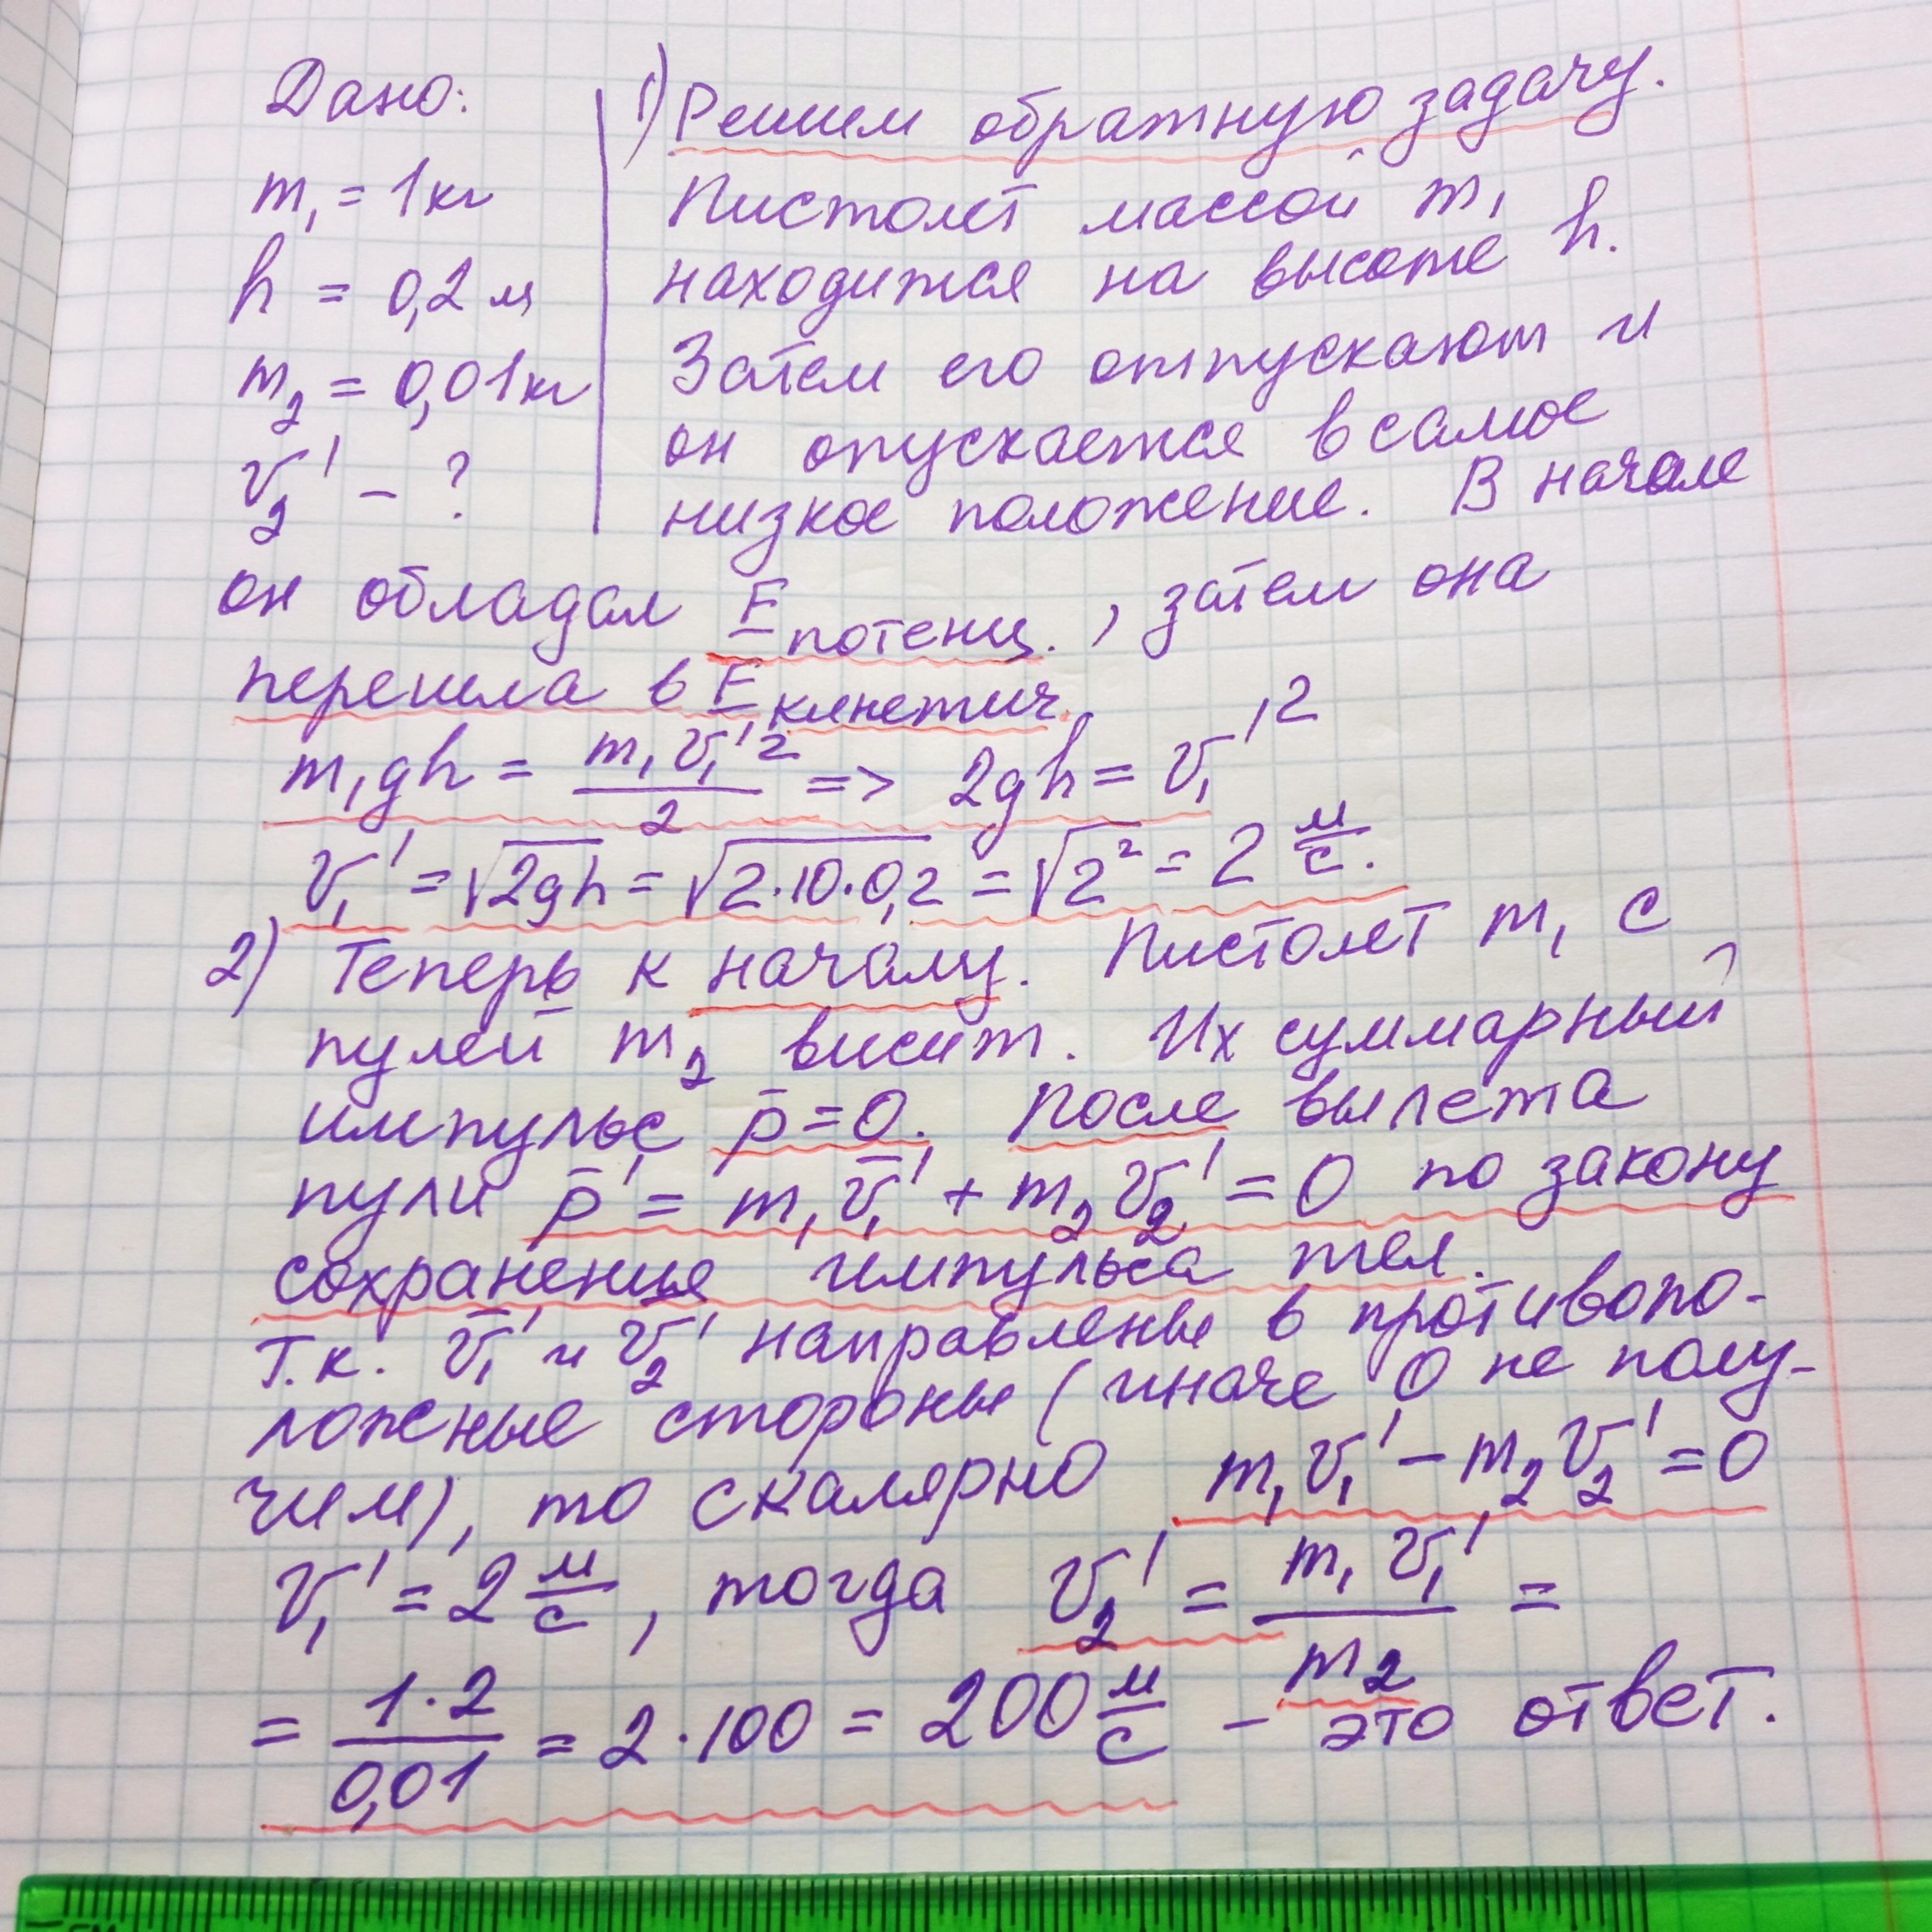 Дано:
m₁ = 1 кг
h = 0,2 м
m₂ = 0,01 кг
v₂' - ?
1) Решим обратную задачу.
Пистолет массой m₁
находится на высоте h.
Затем его отпускают и
он опускается в самое
низкое положение. В начале
он обладал E потенц., затем она
перешла в E кинетич.
m₁gh = m₁v₁'²/2 => 2gh = v₁'²
v₁' = √2gh = √2·10·0,2 = √2² = 2 м/с.
2) Теперь к началу. Пистолет m₁ с
пулей m₂ висит. Их суммарный
импульс p̄ = 0. После вылета
пули p̄' = m₁v̄₁' + m₂v̄₂' = 0 по закону
сохранения импульса тел.
Т.к. v̄₁' и v̄₂' направлены в противопо-
ложные стороны (иначе 0 не полу-
чим), то скалярно m₁v₁' - m₂v₂' = 0
v₁' = 2 м/с, тогда v₂' = m₁v₁'/m₂ =
= 1·2/0,01 = 2·100 = 200 м/с - это ответ.
см